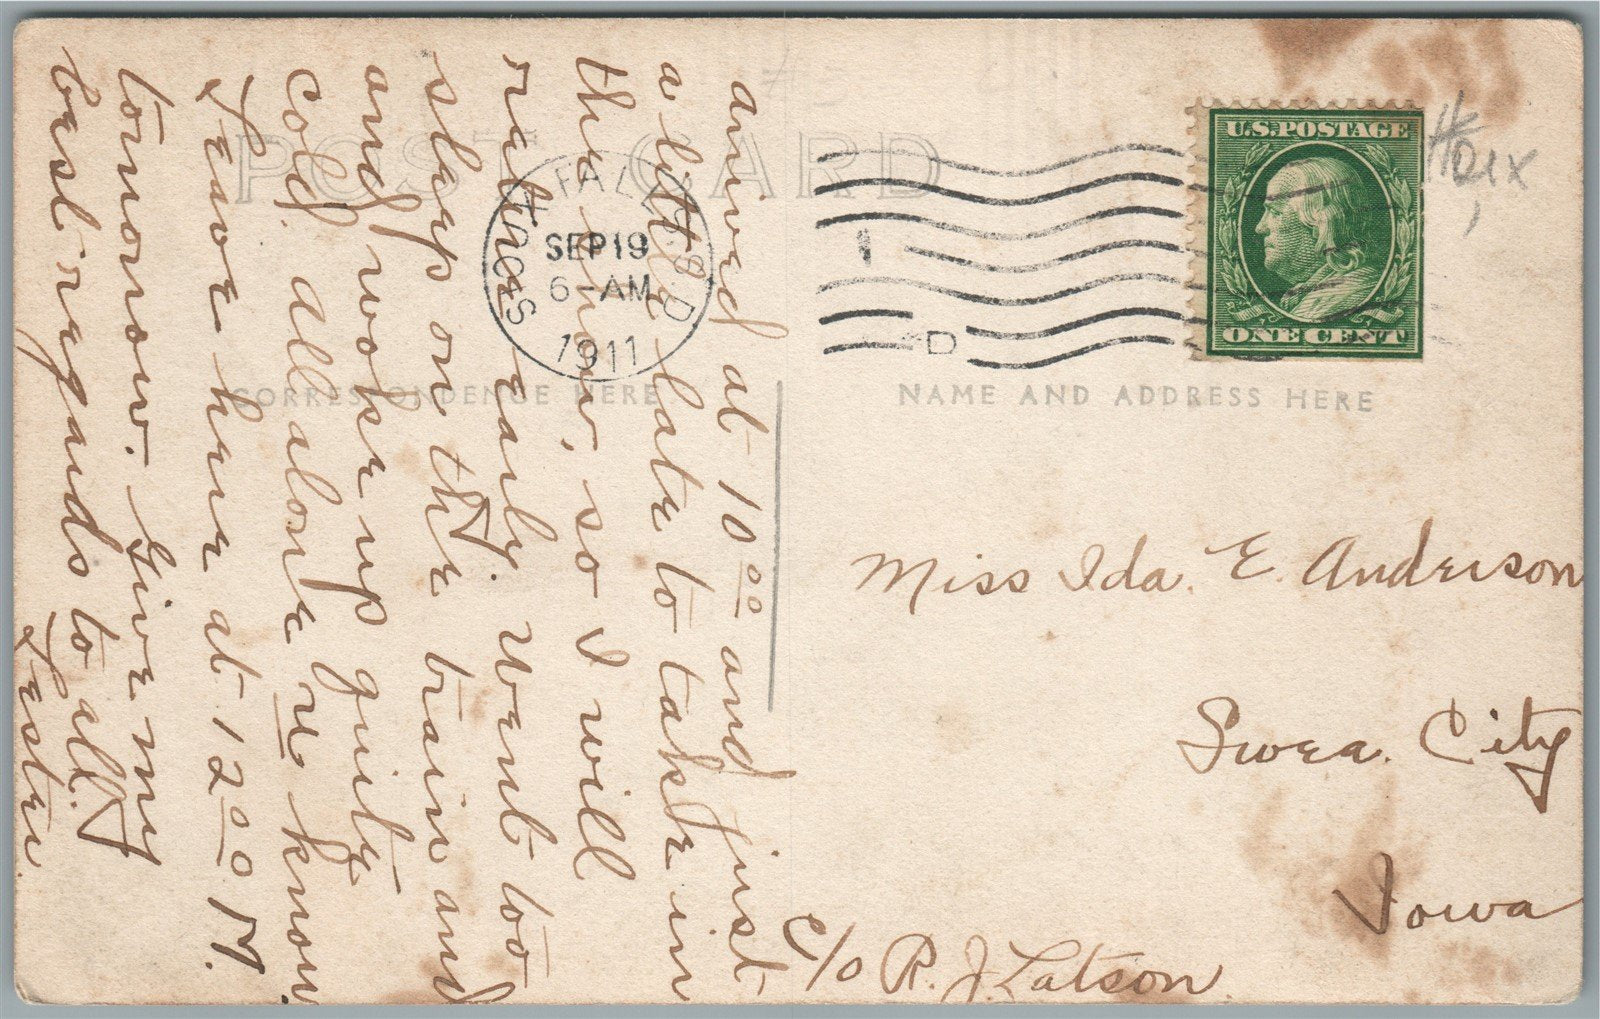 POST CARD
SIOUX FALLS, S.D.
SEP 19
6-AM
1911
D
U.S. POSTAGE
ONE CENT
CORRESPONDENCE HERE
NAME AND ADDRESS HERE
arived at 10 00 and just
a little late to take in
the show, so I will
retire early. Went too
sleep on the train and
and woke up quity
cold. all alone u know
Leave here at 12 00 M.
tomorrow. Give my
best regards to all.
Lester.
Miss Ida. E. Anderson
Swea. City
Iowa
c/o R. J. Latson